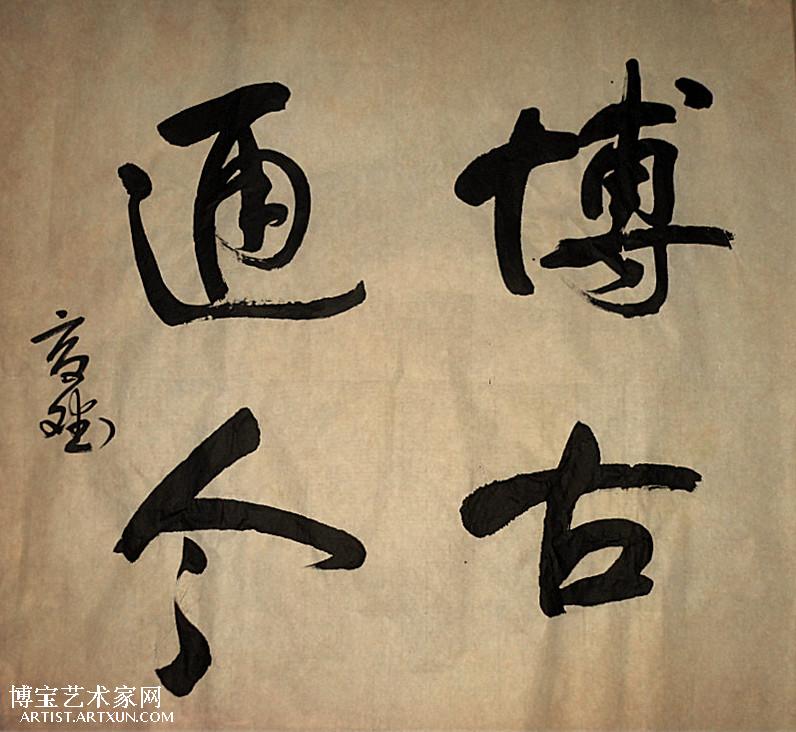 博古
通今
博宝艺术家网
ARTIST.ARTXUN.COM